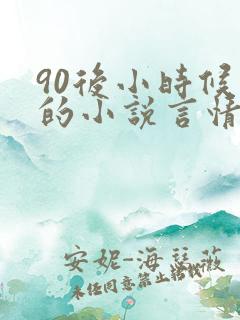 90後小時候
的小說言情
安妮-海瑟薇
未经同意禁止搭载